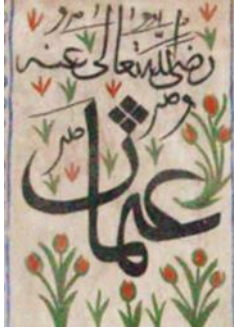 رضى الله تعالى عنه
عثمان